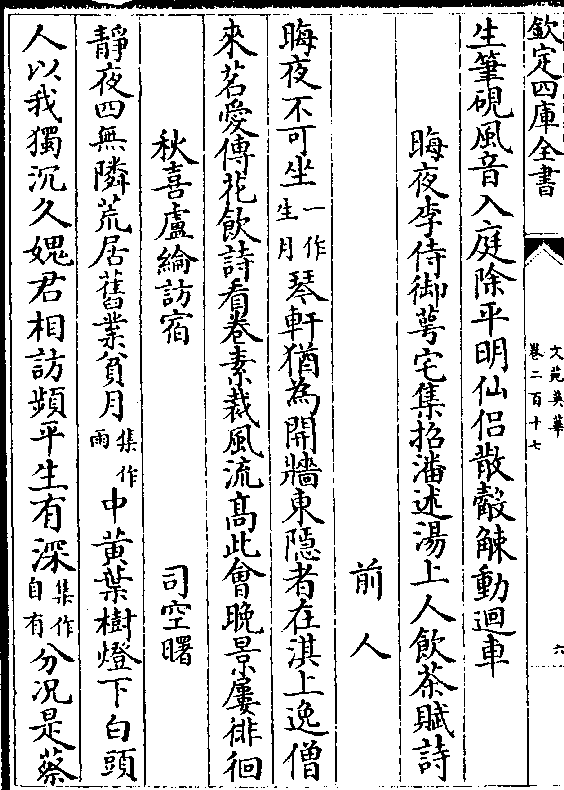 欽定四庫全書
文苑英華
卷二百十七
六
生筆硯風音入庭除平明仙侶散觳觫動迴車
晦夜李侍御萼宅集招潘述湯上人飲茶賦詩
前人
晦夜不可坐一作生月琴軒猶為開牆東隱者在淇上逸僧
來茗愛傳花飲詩看卷素裁風流髙此㑹晚景屢徘徊
秋喜盧綸訪宿
司空曙
靜夜四無隣荒居舊業貧月集作雨中黃葉樹燈下白頭
人以我獨沉久媿君相訪頻平生有深集作自有分况是蔡